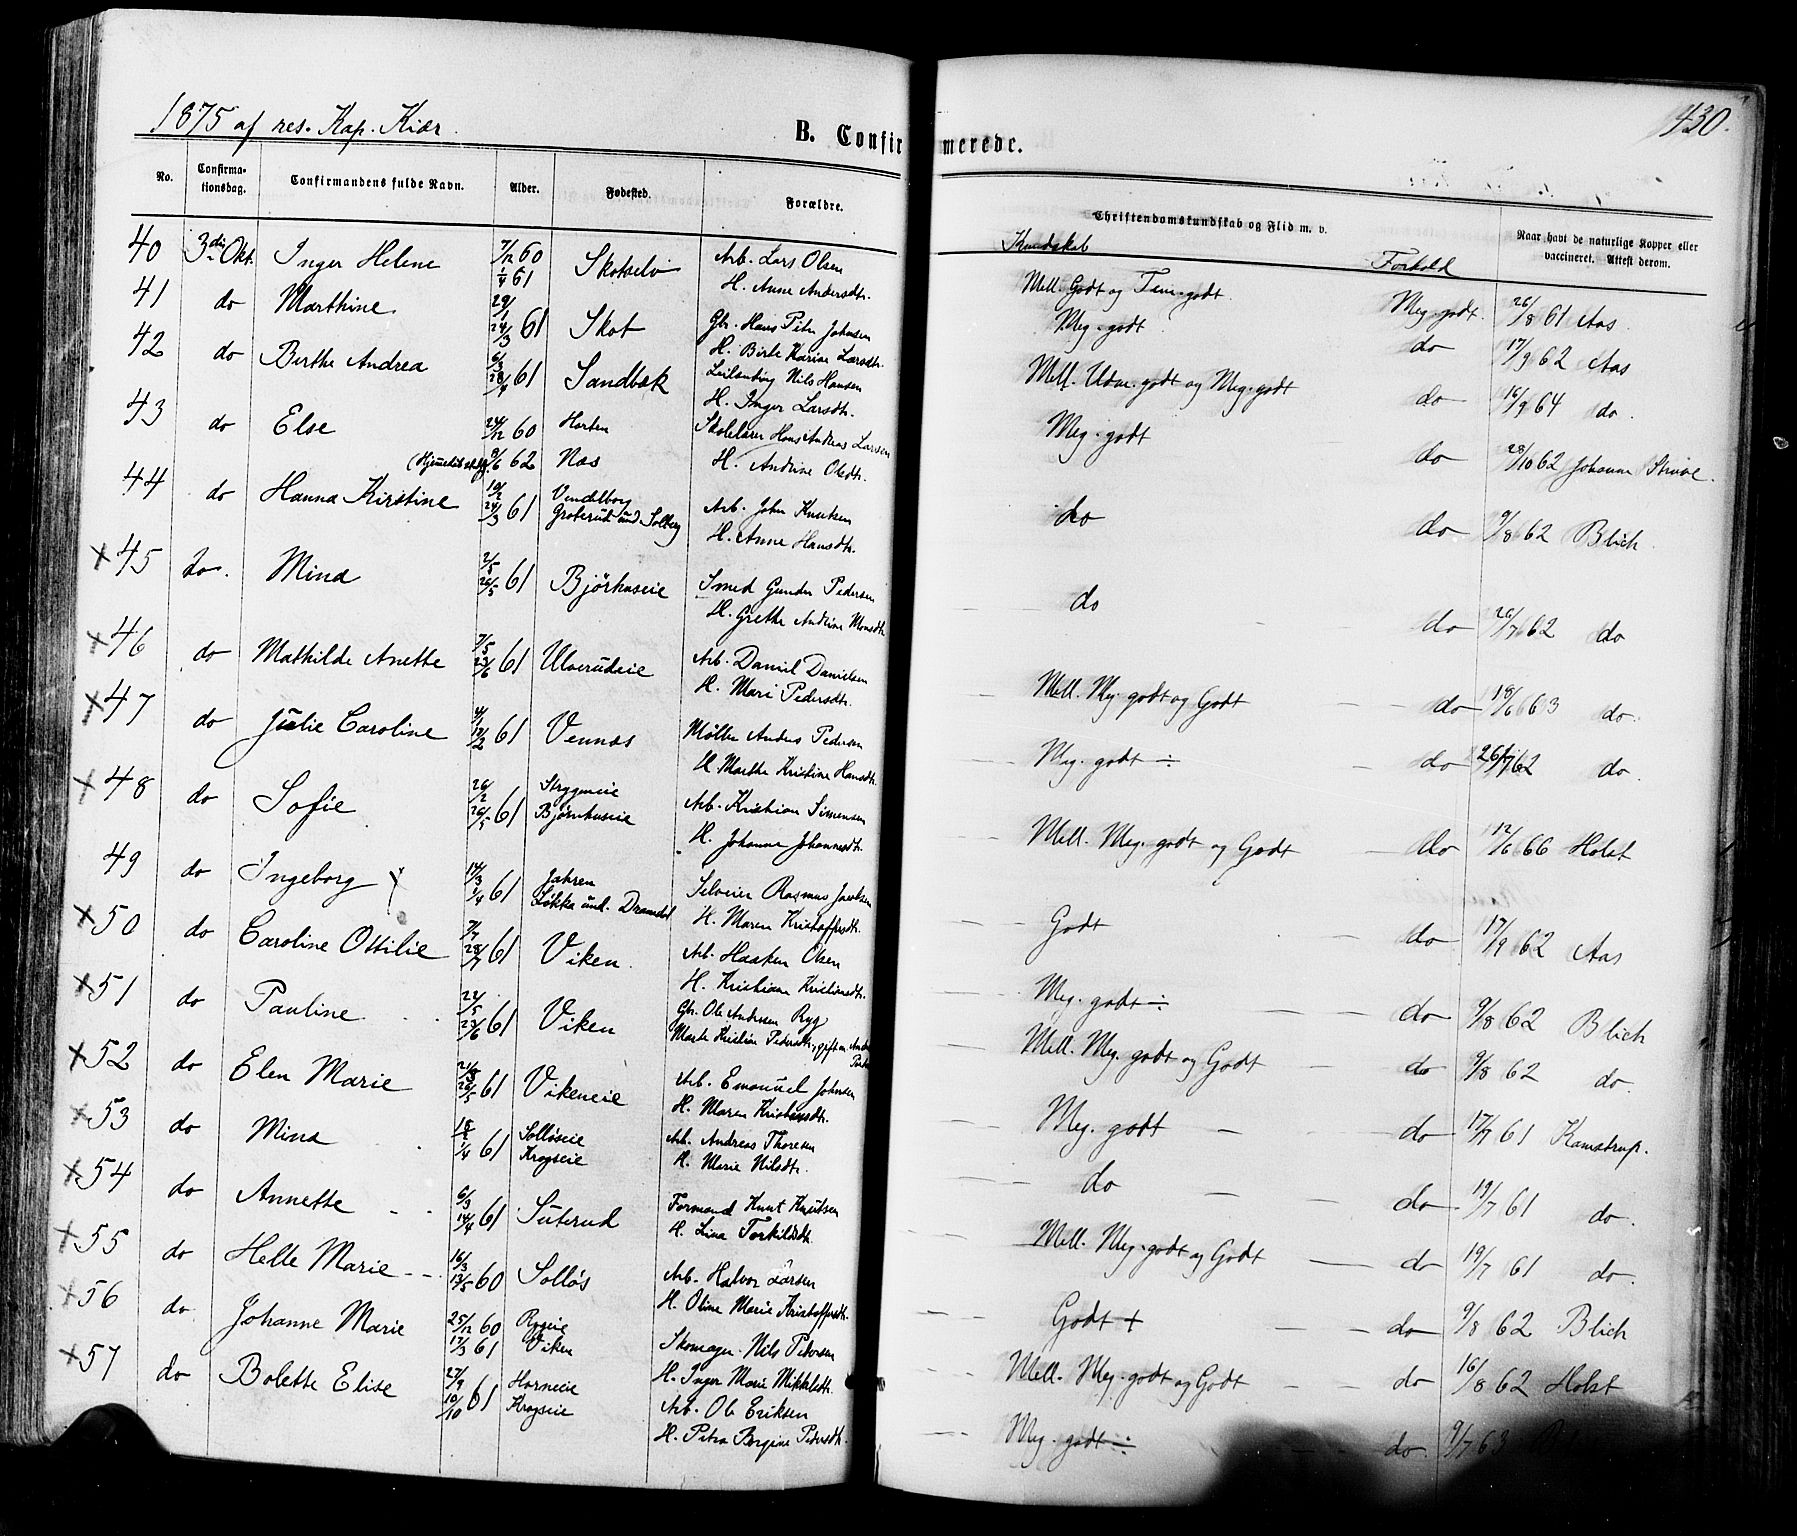 1875 af res. Kap. Kiær.
430.
B. Confirmerede.
No. Confirmationsdag. Confirmandens fulde Navn. Alder. Fødested. Forældre. Christendomskundskab og Flid m. v. Naar havt de naturlige Kopper eller vaccineret. Attest derom.
Kundskab Forhold
40 3die Okt. Inger Helene 7/12 60 Skotselv Arb. Lars Olsen Mell. Godt og Tem. godt. Meg. godt. 26/8 61 Aas.
1/4 61 H. Anne Andersdtr.
41 do Marthine 29/1 24/3 61 Skot Gbr. Hans Peter Johnsen Meg. godt do 17/9 62 Aas
H. Birte Karine Larsdtr.
42 do Birthe Andrea 6/3 28/4 61 Sandbæk Leilænding Nils Hansen Mell. Udm. godt og Meg. godt do 16/9 64 do.
H. Inger Larsdtr.
43 do Else 24/12 60 Horten Skolelærer Hans Andreas Larsen Meg. godt do 28/10 62 Johanne Struve.
8/6 62 Næs H. Andrine Olsdtr.
44 do Hanna Kirstine 10/2 24/3 61 Vendelborg Arb. John Knutsen do do 9/8 62 Blich.
Groterud und. Solberg H. Anne Hansdtr.
x 45 do. Mina 2/5 26/5 61 Bjørhuseie Smed Gunder Pedersen do do 26/7 62 do
H. Grethe Andrine Monsdtr.
x 46 do Mathilde Anette 7/5 23/6 61 Ulverudeie Arb. Daniel Danielsen Mell. Meg. godt og Godt do 18/6 63 do.
H. Mari Pedersdtr.
x 47 do Julie Caroline 4/1 12/2 61 Vennæs Møller Anders Pedersen Meg. godt ÷ do 26/7 62 do.
H. Marthe Kristine Hansdtr.
x 48 do Sofie 26/2 26/5 61 Stryganeie Arb. Kristian Simensen Mell. Meg. godt og Godt do 12/6 66 Holst
Bjørnhuseie H. Johanne Johannesdtr.
49 do Ingeborg 14/3 1/4 61 Jahren Selveier Rasmus Jacobsen Godt do 17/9 62 Aas
Løkka und. Dramdal H. Maren Kristoffersdtr.
x 50 do Caroline Ottilie 7/7 28/7 61 Viken. Arb. Haaken Olsen Meg. godt ÷ do 9/8 62 Blich
H. Kristiane Kristiansdtr.
x 51 do Pauline 22/5 23/6 61 Viken Gbr. Ole Andersen Ryg Mell. Meg. godt og Godt do 9/8 62 do.
Marte Kristine Pedersdtr.
x 52 do Elen Marie 26/5 61 Vikeneie Arb. Emanuel Johnsen Meg. godt do 17/7 61 Kamstrup.
H. Maren Kristiansdtr.
x 53 do Mina 18/2 1/4 61 Solløseie Arb. Andreas Thoresen do do 19/7 61 do.
Krogseie H. Marie Nilsdtr.
x 54 do Annette 6/3 14/4 61 Suterud Formand Knut Knutsen Mell. Meg. godt og Godt do 19/7 61 do.
H. Lina Torkildsdtr.
x 55 do Helle Marie 16/3 13/5 60 Solløs Arb. Halvor Larsen Godt + do 9/8 62 Blich
H. Oline Marie Kristoffersdtr.
x 56 do Johanne Marie 25/12 60 Rygeie Skomager Nils Petersen Mell. Meg. godt og Godt do 16/8 62 Holst
17/3 61 Viken H. Inger Marie Mikkelsdtr.
x 57 do Bolette Elise 27/9 10/10 61 Horneeie Arb. Ole Eriksen Meg. godt ÷ do. 9/7 63
Krogseie H. Petra Bergine Petersdtr.